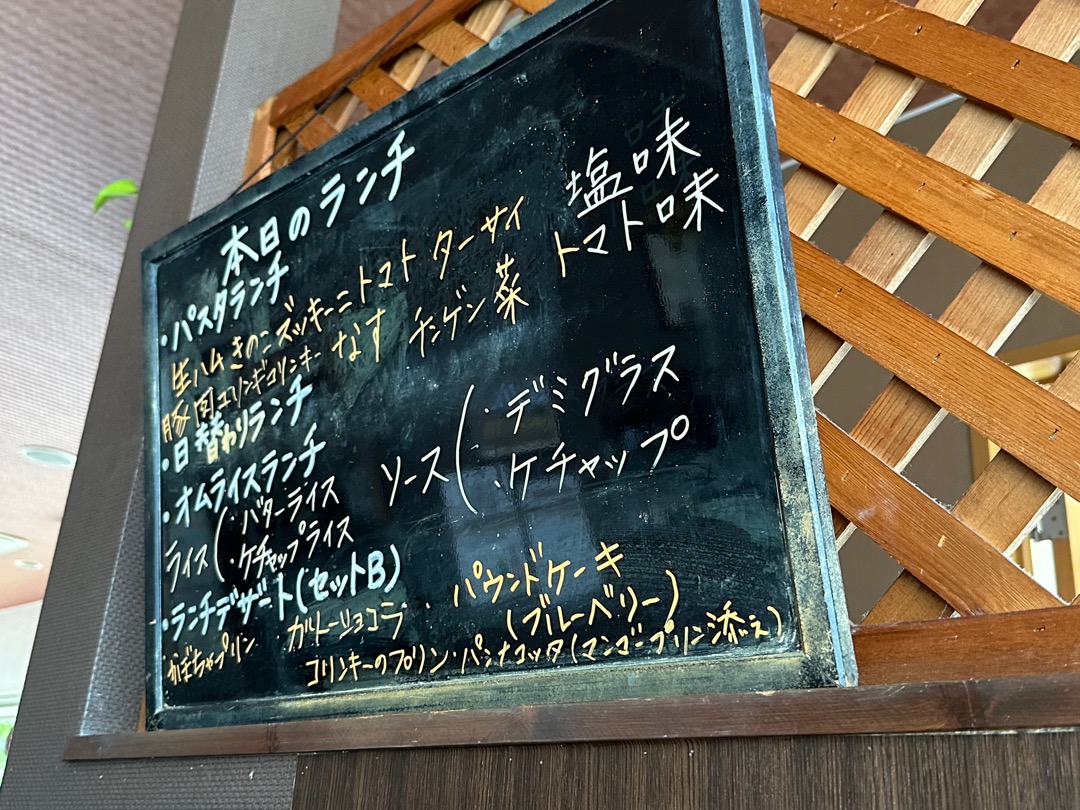 本日のランチ
・パスタランチ
生ハム きのこ ズッキーニ トマト ターサイ 塩味
豚肉 エリンギ コリンキー なす チンゲン菜 トマト味
・日替わりランチ
・オムライスランチ
ライス(・バターライス
・ケチャップライス
ソース(・デミグラス
・ケチャップ
・ランチデザート(セットB)
・かぼちゃプリン・ガトーショコラ・パウンドケーキ
(ブルーベリー)
コリンキーのプリン・パンナコッタ(マンゴープリン添え)